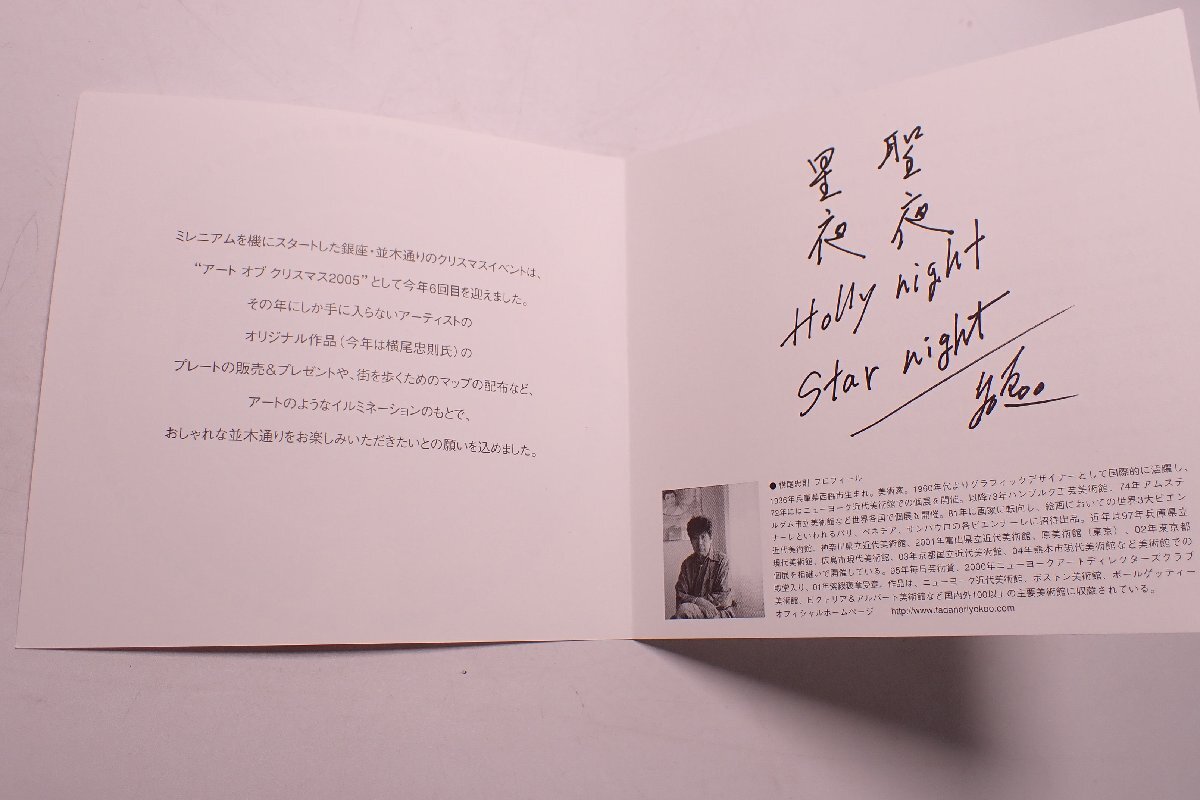 ミレニアムを機にスタートした銀座・並木通りのクリスマスイベントは、
“アート オブ クリスマス2005”として今年6回目を迎えました。
その年にしか手に入らないアーティストの
オリジナル作品（今年は横尾忠則氏）の
プレートの販売＆プレゼントや、街を歩くためのマップの配布など、
アートのようなイルミネーションのもとで、
おしゃれな並木通りをお楽しみいただきたいとの願いを込めました。
聖夜
星夜
Holly night
Star night
●横尾忠則 プロフィール
1936年兵庫県西脇市生まれ。美術家。1960年代よりグラフィックデザイナーとして国際的に活躍し、
72年にはニューヨーク近代美術館での個展を開催。以降73年ハンブルク工芸美術館、74年アムステ
ルダム市立美術館など世界各国で個展を開催。81年に画家に転向し、絵画においての世界3大ビエン
ナーレといわれるパリ、ベネチア、サンパウロの各ビエンナーレに招待出品。近年は97年兵庫県立
近代美術館、神奈川県立近代美術館、2001年富山県立近代美術館、原美術館（東京）、02年東京都
現代美術館、広島市現代美術館、03年京都国立近代美術館、04年熊本市現代美術館など美術館での
個展を相継いで開催している。95年毎日芸術賞、2000年ニューヨークアートディレクターズクラブ
殿堂入り、01年紫綬褒章受章。作品は、ニューヨーク近代美術館、ボストン美術館、ポールゲッティー
美術館、ビクトリア＆アルバート美術館など国内外100以上の主要美術館に収蔵されている。
オフィシャルホームページ http://www.tadanoriyokoo.com